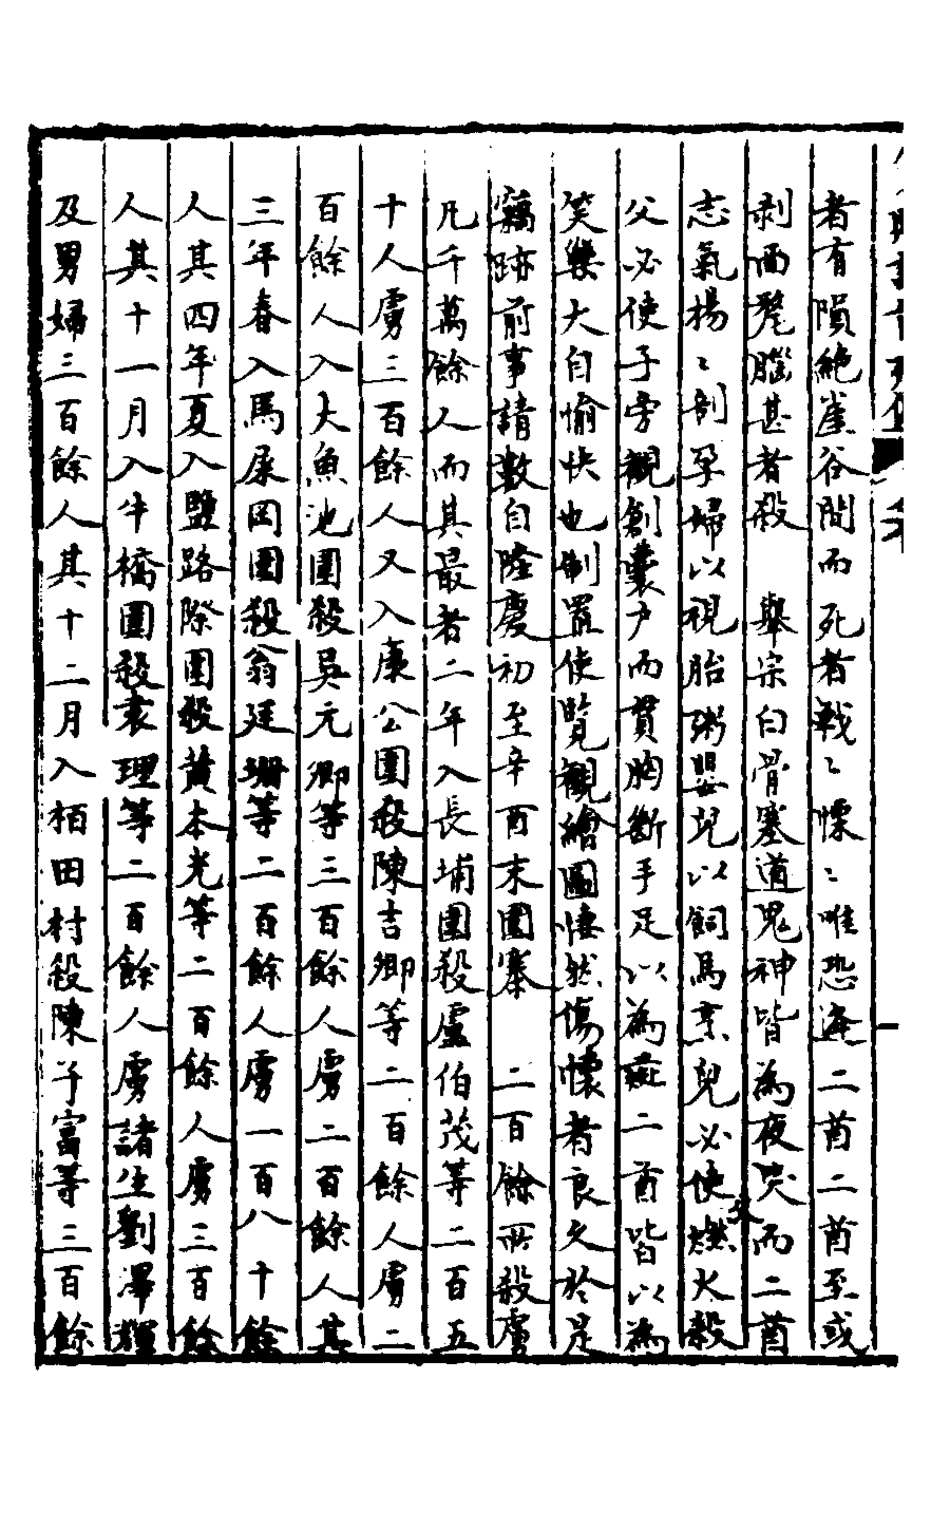 者有隕絶崖谷間而死者戰〻慄〻唯恐逢二酋二酋至或
剥面鑿腦甚者殺 舉宗白骨塞道鬼神皆為夜哭而二酋
志氣揚〻剖孕婦以視胎粥嬰兒以飼馬烹兒必使父燃火殺
父必使子旁觀創囊戶而貫胸斷手足以為 二酋皆以為
笑樂大自愉快也制置使覽觀繪圖悽然傷懷者良久於是
竊跡前事請數自隆慶初至辛酉末圍寨 二百餘所殺虜
凡千萬餘人而其最者二年入長埔圍殺盧伯茂等二百五
十人虜三百餘人又入康公圍殺陳吉卿等二百餘人虜二
百餘人入大魚池圍殺吳元卿等三百餘人虜二百餘人其
三年春入馬屎岡圍殺翁廷珊等二百餘人虜一百八十餘
人其四年夏入鹽路除圍殺黃本光等二百餘人虜三百餘
人其十一月入牛橋圍殺袁理等二百餘人虜諸生劉澤輝
及男婦三百餘人其十二月入栢田村殺陳子富等三百餘